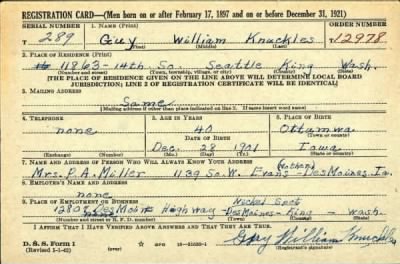 REGISTRATION CARD—(Men born on or after February 17, 1897 and on or before December 31, 1921)
SERIAL NUMBER 1. NAME (Print) ORDER NUMBER
T 289 Guy William Knuckles 12978
(First) (Middle) (Last)
2. PLACE OF RESIDENCE (Print)
11863-14th. So. Seattle King Wash.
(Number and street) (Town, township, village, or city) (County) (State)
[THE PLACE OF RESIDENCE GIVEN ON THE LINE ABOVE WILL DETERMINE LOCAL BOARD
JURISDICTION; LINE 2 OF REGISTRATION CERTIFICATE WILL BE IDENTICAL]
3. MAILING ADDRESS
Same
[Mailing address if other than place indicated on line 2. If same insert word same]
4. TELEPHONE 5. AGE IN YEARS 6. PLACE OF BIRTH
none 40 Ottumwa
DATE OF BIRTH (Town or county)
Dec. 28 1901 Iowa
(Exchange) (Number) (Mo.) (Day) (Yr.) (State or country)
7. NAME AND ADDRESS OF PERSON WHO WILL ALWAYS KNOW YOUR ADDRESS
(Mother)
Mrs. P.A. Miller 1139 So.W. Evans - DesMoines, Ia.
8. EMPLOYER'S NAME AND ADDRESS
none
9. PLACE OF EMPLOYMENT OR BUSINESS
Nickel Spot
DesMoines Highway - DesMoines - King - Wash.
(Number and street or R. F. D. number) (Town) (County) (State)
I AFFIRM THAT I HAVE VERIFIED ABOVE ANSWERS AND THAT THEY ARE TRUE.
D. S. S. Form 1
(Revised 1-1-42) (over)
Guy William Knuckles
(Registrant's signature)